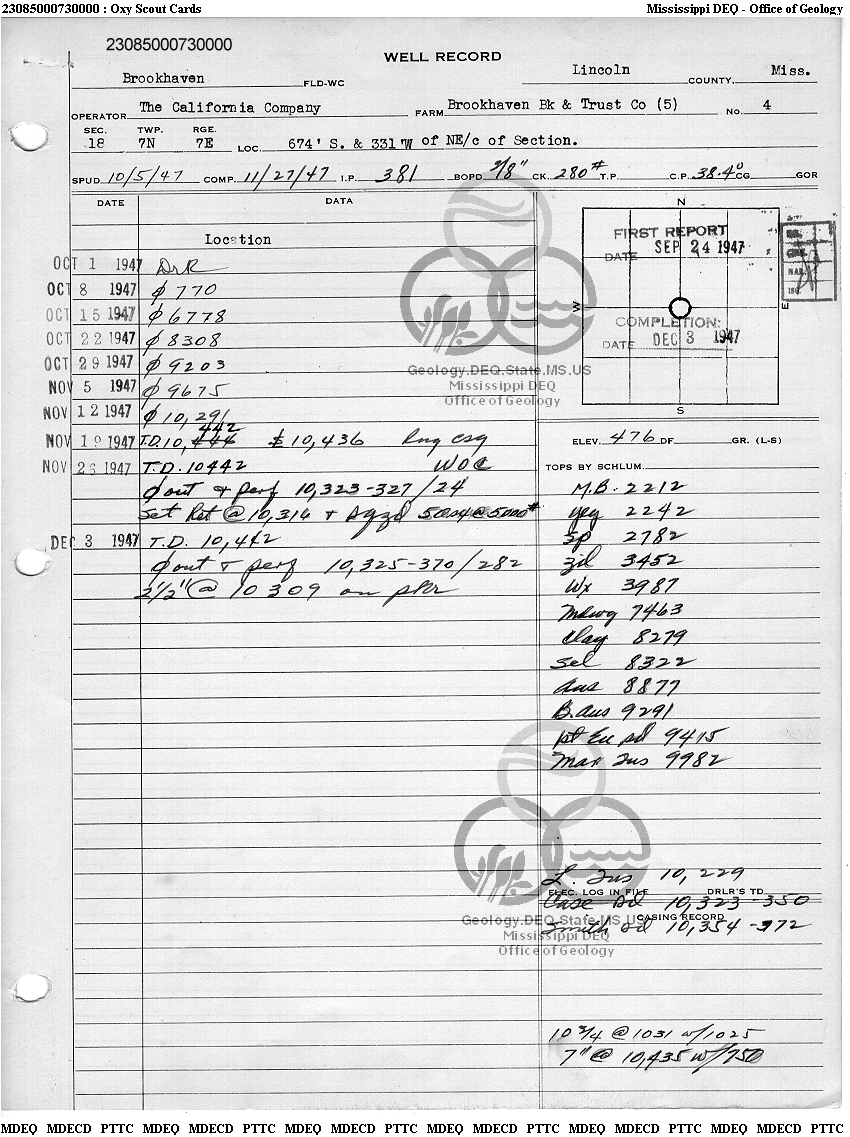 23085000730000 : Oxy Scout Cards Mississippi DEQ - Office of Geology
23085000730000
WELL RECORD
Brookhaven FLD-WC Lincoln COUNTY, Miss.
OPERATOR The California Company FARM Brookhaven Bk & Trust Co (5) No. 4
SEC. TWP. RGE.
18 7N 7E LOC. 674' S. & 331'W of NE/c of Section.
SPUD 10/5/47 COMP. 11/27/47 I.P. 381 BOPD 3/8" CK. 280# T.P. C.P. 38.4° CG GOR
DATE DATA
Location
OCT 1 1947 DrR
OCT 8 1947 φ 770
OCT 15 1947 φ 6778
OCT 22 1947 φ 8308
OCT 29 1947 φ 9203
NOV 5 1947 φ 9675
NOV 12 1947 φ 10,291
442
NOV 19 1947 T.D. 10,444 $ 10,436 Rng csg
NOV 26 1947 T.D. 10442 WOC
φ out + perf 10,323-327/24
Set Ret @ 10,316 + Sqzd @ 5000#
DEC 3 1947 T.D. 10,442
φ out + perf 10,325-370/282
2 1/2" @ 10309 on pkr
N
W
E
S
FIRST REPORT
DATE SEP 24 1947
COMPLETION:
DATE DEC 3 1947
ELEV. 476 DF. GR. (L-S)
TOPS BY SCHLUM.
M.B. 2212
Yeg 2242
Sp 2782
Zil 3452
Wx 3987
Mdwg 7463
Clay 8279
Sel 8322
Aus 8877
B. Aus 9291
1st Eu sd 9415
Mar Tus 9982
L. Tus 10,229
ELEC. LOG IN FILE DRLR'S TD
Case Sd 10,323-350
CASING RECORD
Smith Sd 10,354-372
10 3/4 @ 1031 w/1025
7" @ 10,435 w/750
Geology.DEQ.State.MS.US
Mississippi DEQ
Office of Geology
Geology.DEQ.State.MS.US
Mississippi DEQ
Office of Geology
MDEQ MDECD PTTC MDEQ MDECD PTTC MDEQ MDECD PTTC MDEQ MDECD PTTC MDEQ MDECD PTTC MDEQ MDECD PTTC